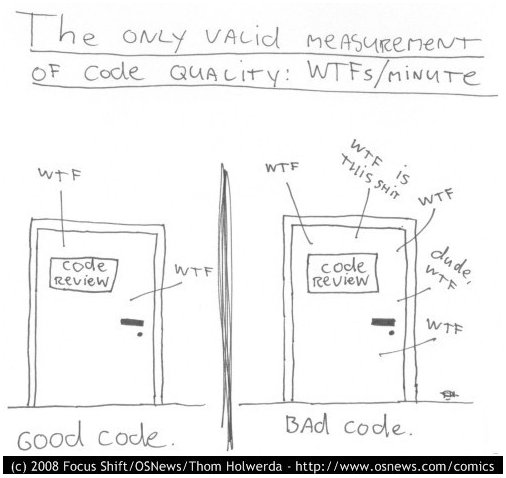 The ONLY VALID MEASUREMENT
OF Code QUALITY: WTFs/MINUTE
WTF
code
REVIEW
WTF
GOOD code.
WTF
WTF is
THIS SHIT
WTF
code
REVIEW
dude,
WTF
WTF
BAd code.
(c) 2008 Focus Shift/OSNews/Thom Holwerda - http://www.osnews.com/comics